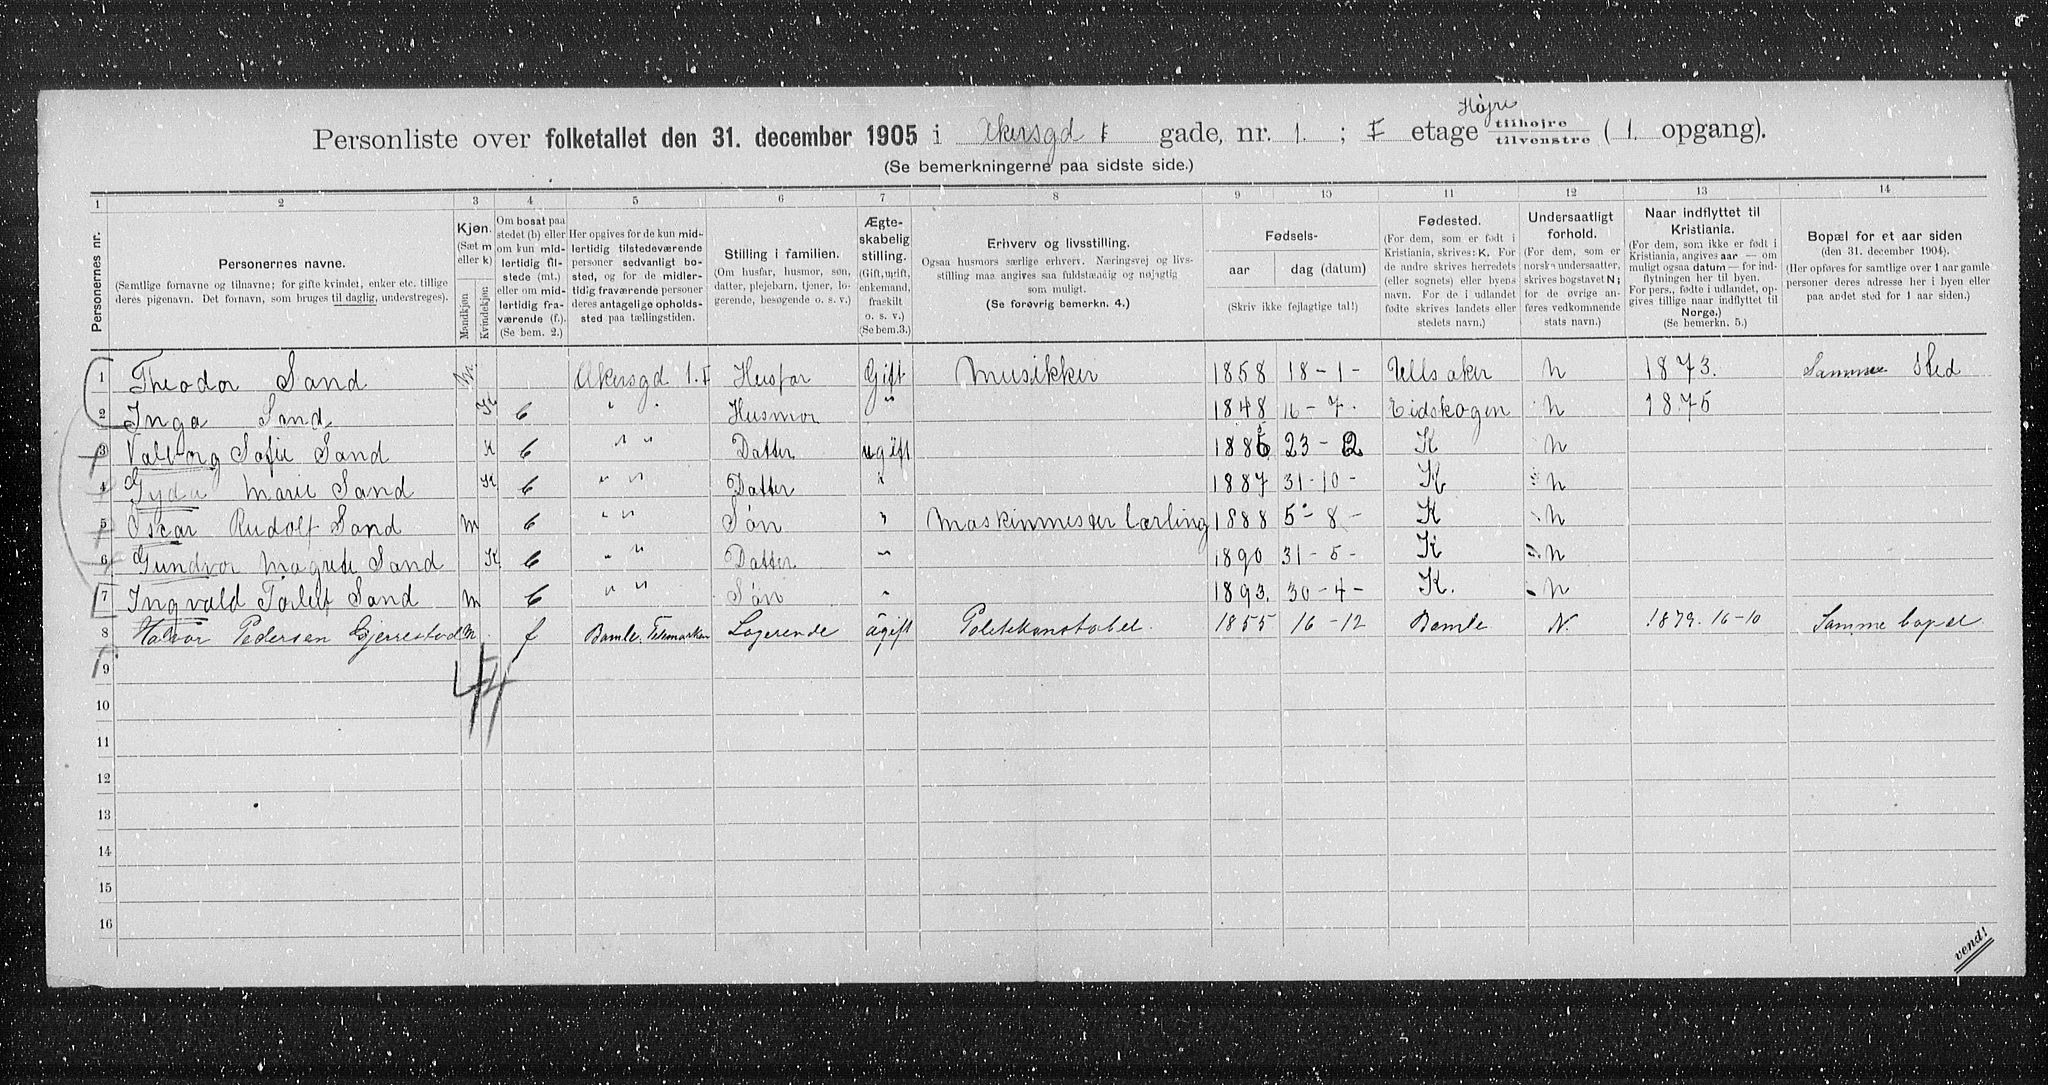 Høire
Personliste over folketallet den 31. december 1905 i Akersgd 1 gade, nr. 1. ; I etage tilhøjre / tilvenstre ( 1. opgang).
(Se bemerkningerne paa sidste side.)
1 2 3 4 5 6 7 8 9 10 11 12 13 14
Personernes nr.
Personernes navne.
(Samtlige fornavne og tilnavne; for gifte kvinder, enker etc. tillige deres pigenavn. Det fornavn, som bruges til daglig, understreges).
Kjøn. (Sæt m eller k) Mandkjøn. Kvindekjøn.
Om bosat paa stedet (b) eller om kun midlertidig tilstede (mt.) eller om midlertidig fraværende (f.). (Se bem. 2.)
Her opgives for de kun midlertidig tilstedeværende personer sedvanligt bosted, og for de midlertidig fraværende personer deres antagelige opholdssted paa tællingstiden.
Stilling i familien. (Om husfar, husmor, søn, datter, plejebarn, tjener, logerende, besøgende o. s. v.)
Ægteskabelig stilling. (Gift, ugift, enkemand, fraskilt o. s. v.) (Se bem.3.)
Erhverv og livsstilling. Ogsaa husmors særlige erhverv. Næringsvej og livsstilling maa angives saa fuldstændig og nøjagtig som muligt. (Se forøvrig bemerkn. 4.)
Fødsels- aar dag (datum) (Skriv ikke fejlagtige tal!)
Fødested. (For dem, som er født i Kristiania, skrives: K. For de andre skrives herredets (eller sognets) eller byens navn. For de i udlandet fødte skrives landets eller stedets navn.)
Undersaatligt forhold. (For dem, som er norske undersaatter, skrives bogstavet N; for de øvrige anføres vedkommende stats navn.)
Naar indflyttet til Kristiania. (For dem, som ikke er født i Kristiania, angives aar — om muligt ogsaa datum — for indflytningen her til byen. For pers., fødte i udlandet, opgives tillige naar indflyttet til Norge.) (Se bemerkn. 5.)
Bopæl for et aar siden (den 31. december 1904). (Her opføres for samtlige over 1 aar gamle personer deres adresse her i byen eller paa andet sted for 1 aar siden.)
1 Theodor Sand m. Akersgd 1. I Husfar Gift Musikker 1858 18-1- Ullsaker N 1873. Samme Sted
2 Inga Sand K b " " Husmor " 1848 16-7. Eidskogen N 1875
3 Valborg Sofie Sand K b " " Datter ugift 23-2 K N
4 Gyda Marie Sand K b " " Datter " 1887 31-10- K N
5 Oscar Rudolf Sand m b " " Søn " Maskinmester Lærling 1888 5-8- K N
6 Gundvor Magrete Sand K b " " Datter " 1890 31-5- K N
7 Ingvald Torleif Sand m b " " Søn " 1893. 30-4- K. N
8 Halvor Pedersen Gjerrestad m. f Bamle. Telemarken Logerende ugift Politikonstabel 1855 16-12 Bamle N. 1879. 16-10 Samme bopel
9
44
10
11
12
13
14
15
16
vend!